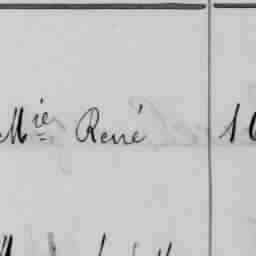 Mie René 10